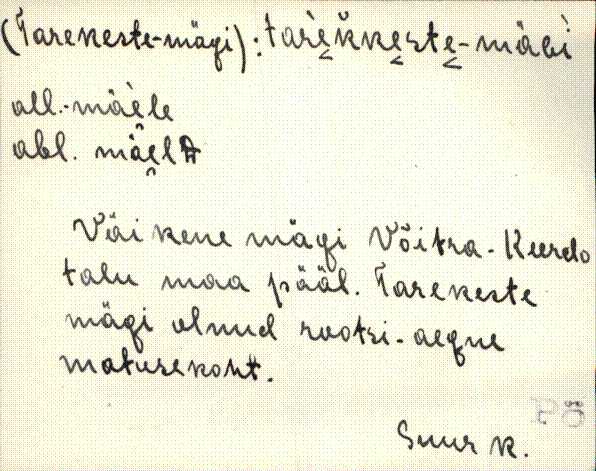 (Tarekeste-mägi): tarèk̆ke̬ste̬-mäGì
all. -mäe̬le
abl. mäe̬lt
Väikene mägi Võitra-Kurdo
talu maa pääl. Tarekeste
mägi olnud rootsi-aegne
matusekoht.
Suur k.
ÖS